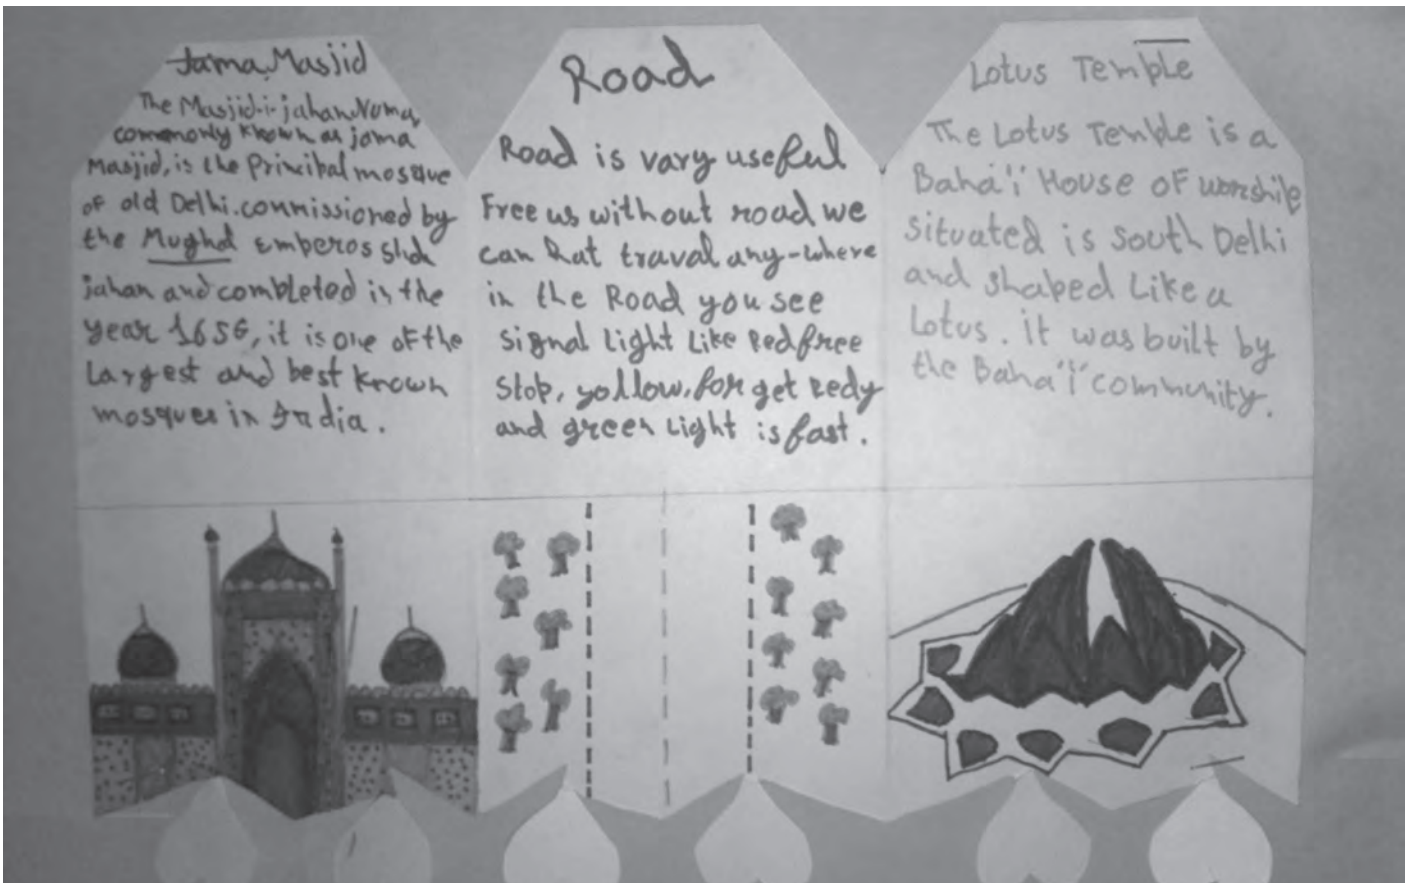 Jama Masjid
The Masjid-i-jahan Numa,
commonly known as jama
Masjid, is the Principal mosque
of old Delhi. commissioned by
the Mughal Emperos
jahan and combleted in the
year 1656, it is one of the
Largest and best known
mosques in India.
Road
Road is vary useful
Free us without road we
can hat traval any-where
in the Road you see
signal light like Red free
stop, yollow, for get Redy
and green Light is fast.
Lotus Temple
The Lotus Temble is a
Baha'i' House of worshile
situated is south Delhi
and shaped Like a
Lotus. it was built by
the Baha'i' community.